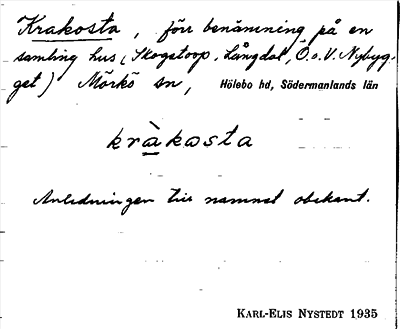 Krakosta, förr benämning på en
samling hus (Skogstorp, Långdal, Ö.o.V. Nybyg-
get) Mörkö sn, Hölebo hd, Södermanlands län
kràkosta
Anledningen till namnet obekant.
KARL-ELIS NYSTEDT 1935